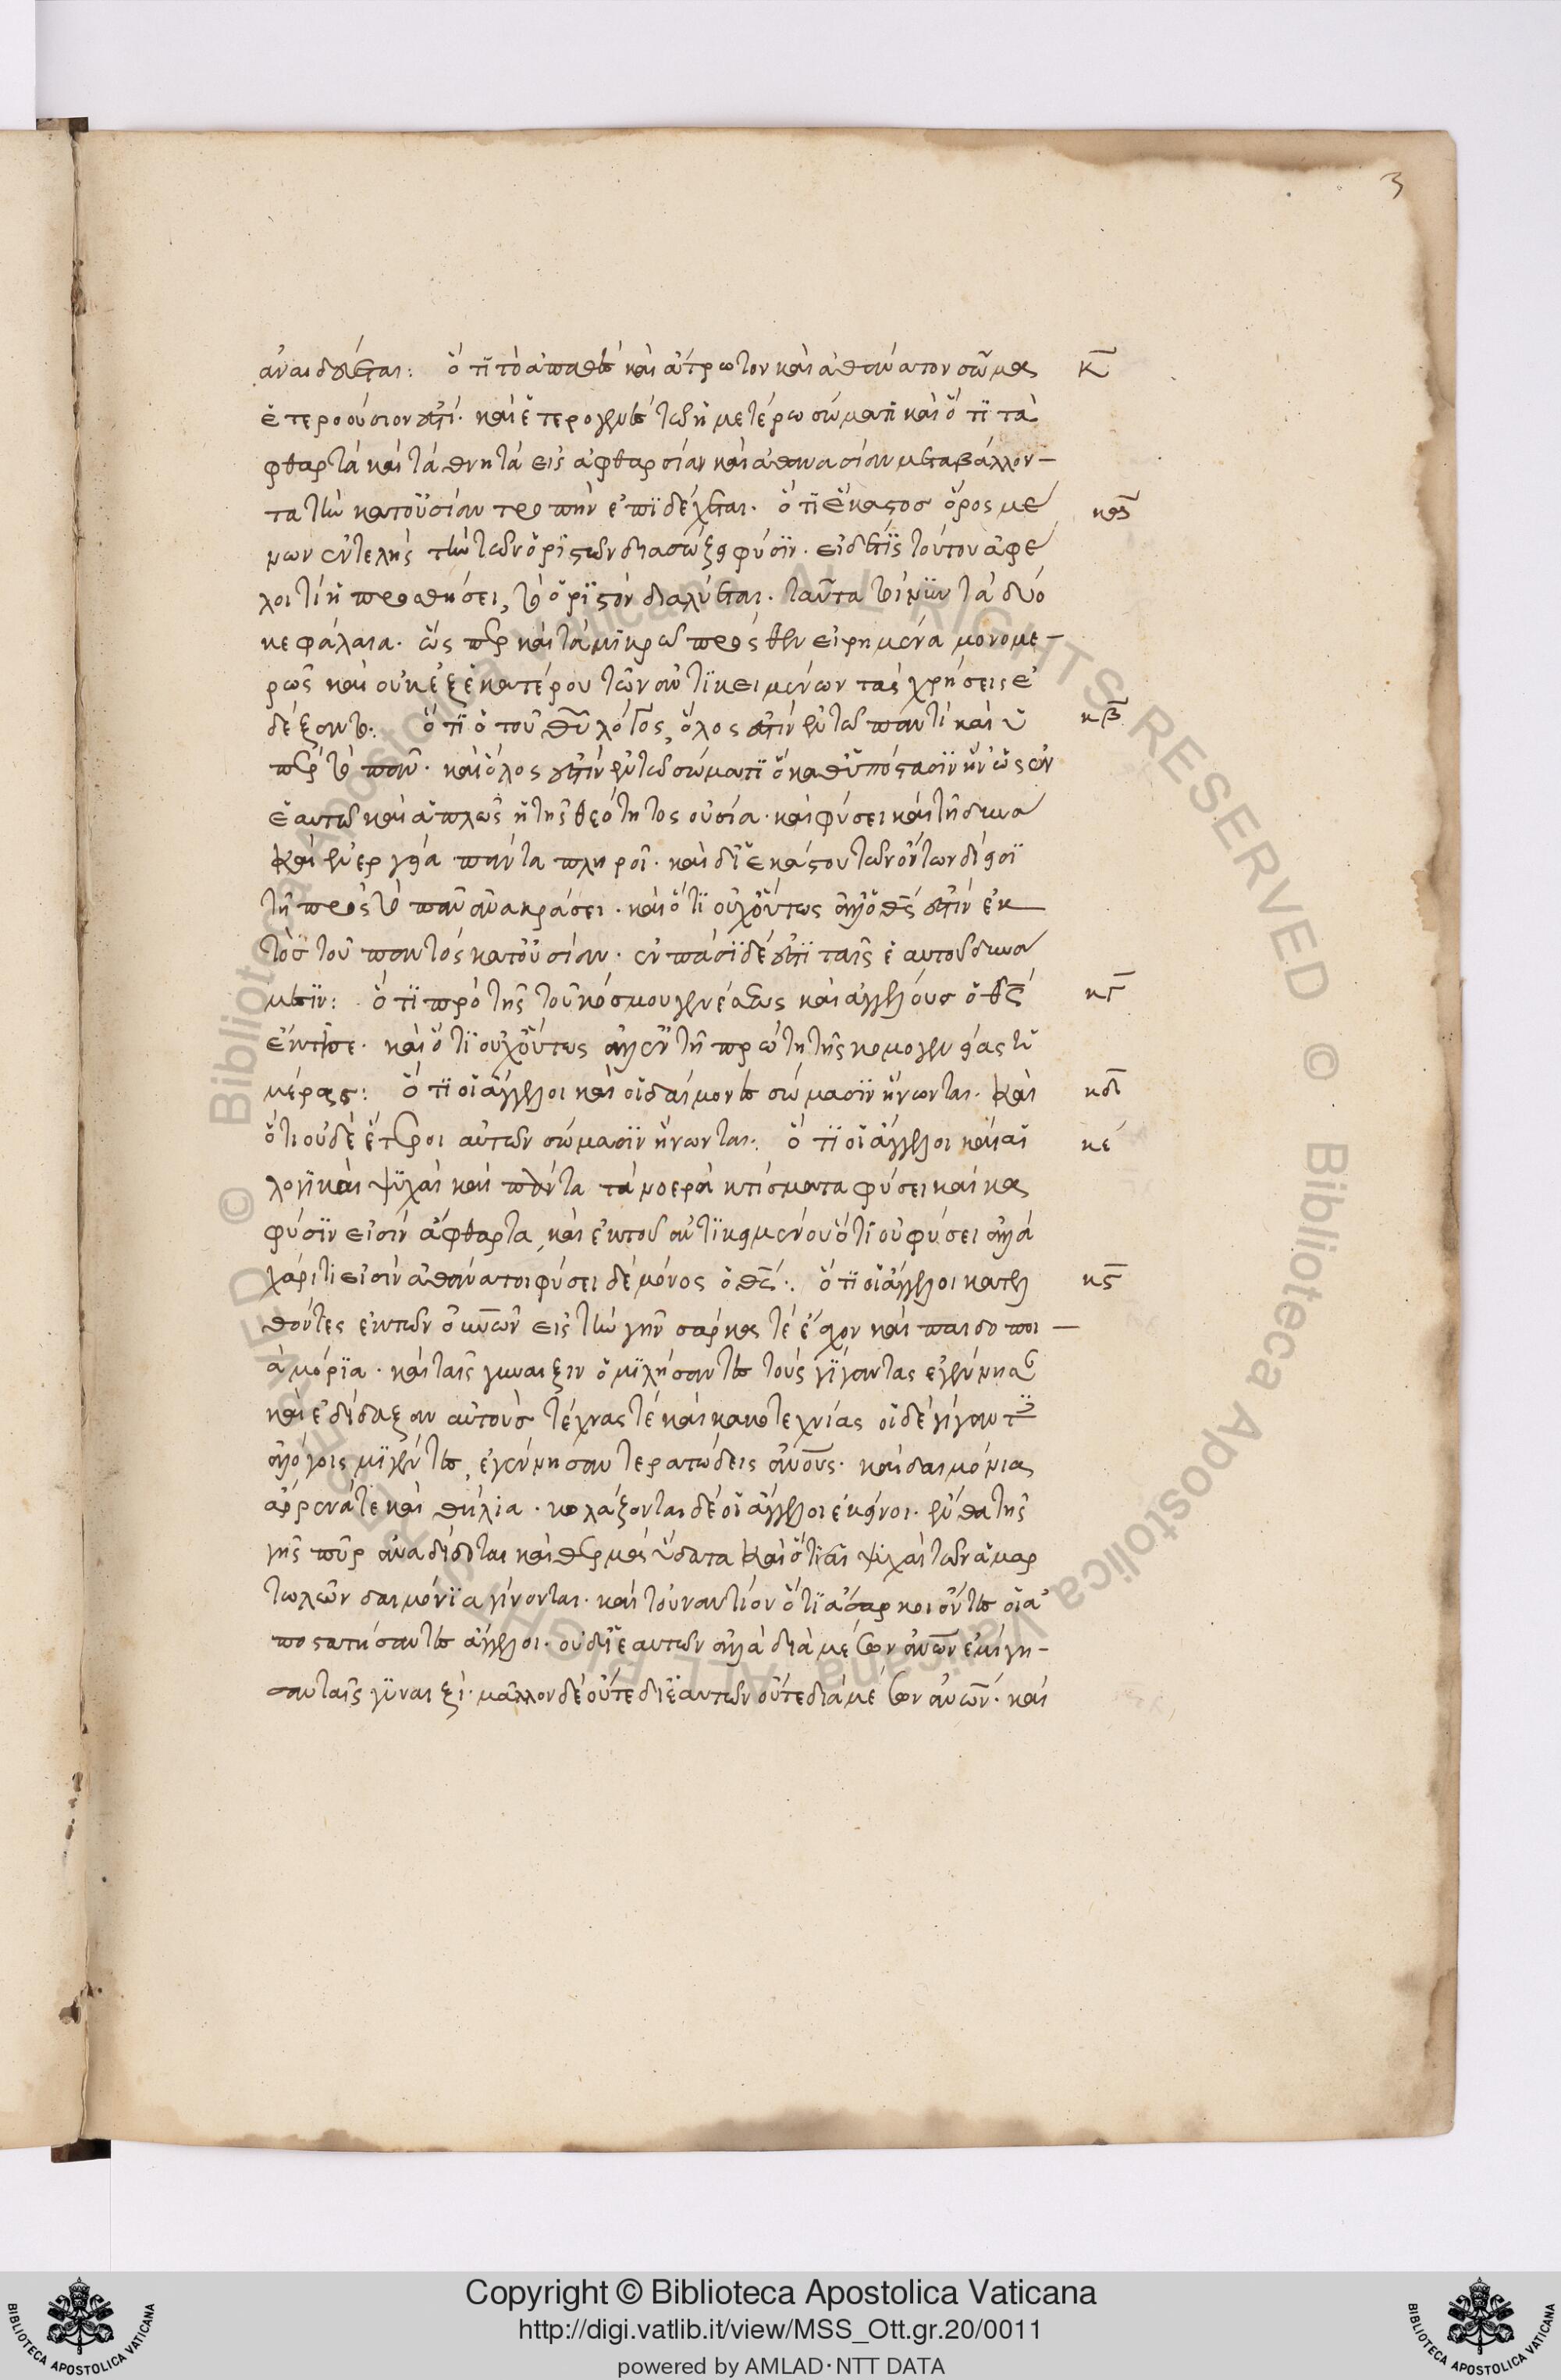 3
ἀναιδεύεται: ὅτι τὸ ἀπαθὲς καὶ ἄτρωτον καὶ ἀθάνατον σῶμα κ
ἑτεροούσιον ἐστί· καὶ ἑτερογενὲς τῶ ἡμετέρω σώματι καὶ ὅτι τὰ
φθαρτὰ καὶ τὰ θνητὰ εἰς ἀφθαρσίαν καὶ ἀθανασίαν μεταβάλλον-
τα τὴν κατ' οὐσίαν τροπὴν ἐπιδέχεται· ὅτι ἕκαστος ὅρος μέ κα
νων ἐντελὴς τὴν τῶν ὁριστῶν διασώζει φύσιν· εἰ δέ τις τούτου ἀφέ
λοι τί ἢ προσθήσει, τὸ ὁριστὸν διαλύεται· ταῦτα τοίνυν τὰ δύο
κεφάλαια· ὥσπερ καὶ τὰ μικρῶ πρόσθεν εἰρημένα μονομε-
ρῶς καὶ οὐκ ἐξ ἑκατέρου τῶν ἀντικειμένων τὰς χρήσεις ἐ
δέξαντο: ὅτι ὁ τοῦ θυ λόγος, ὅλος ἐστὶν ἐν τῶ παντὶ καὶ ὑ κβ
πὲρ τὸ πᾶν· καὶ ὅλος ἐστὶν ἐν τῶ σώματι ὃ καθ' ὑπόστασιν ἥνωσεν
ἑαυτῶ καὶ ἁπλῶς ἡ τῆς θεότητος οὐσία· καὶ φύσει καὶ τῆ δυνά
καὶ ἐνεργεία πάντα πληροῖ· καὶ δι' ἑκάστου τῶν ὄντων δίεισι
τῆ πρὸς τὸ πᾶν ἀνακράσει· καὶ ὅτι οὐχ οὕτως ἀλλ' ὁ θς ἐστὶν ἐκ
τὸς τοῦ παντὸς κατ' οὐσίαν· ἐν πᾶσι δέ ἐστι ταῖς ἑαυτοῦ δυνά
μεσιν: ὅτι πρὸ τῆς τοῦ κόσμου γενέσεως καὶ ἀγγέλους ὁ θς κγ
ἔκτισε· καὶ ὅτι οὐχ οὕτως ἀλλ' ἐν τῆ πρώτη τῆς κοσμογενείας ἡ
μέρας: ὅτι οἱ ἄγγελοι καὶ οἱ δαίμονες σώμασιν ἥνωνται· καὶ κδ
ὅτι οὐδὲ ἕτεροι αὐτῶν σώμασιν ἥνωνται: ὅτι οἱ ἄγγελοι καὶ αἱ κε
λογικαὶ ψυχαὶ καὶ πάντα τὰ νοερὰ κτίσματα φύσει καὶ κατὰ
φύσιν εἰσὶν ἄφθαρτα, καὶ ἐκ τοῦ ἀντικειμένου ὅτι οὐ φύσει ἀλλὰ
χάριτι εἰσὶν ἀθάνατοι φύσει δὲ μόνος ὁ θς: ὅτι οἱ ἄγγελοι κατελ κς
θόντες ἐκ τῶν οὐνῶν εἰς τὴν γῆν σάρκας τὲ ἔσχον καὶ παιδοποι-
ὰ μόρια· καὶ ταῖς γυναιξὶν ὁμιλήσαντες τοὺς γίγαντας ἐγέννησαν
καὶ ἐδίδαξαν αὐτοὺς τέχνας τὲ καὶ κακοτεχνίας οἱ δὲ γίγαντες
ἀλόγοις μιγέντες, ἐγέννησαν τερατώδεις ἀνους· καὶ δαιμόνια
ἄρρενά τε καὶ θήλια· κολάζονται δὲ οἱ ἄγγελοι ἐκεῖνοι· ἔνθα τῆς
γῆς πῦρ ἀναδίδοται καὶ θερμὰ ὕδατα καὶ ὅτι αἱ ψυχαὶ τῶν ἁμαρ
τωλῶν δαιμόνια γίνονται· καὶ τοὐναντίον ὅτι ἄσαρκοι ὄντες οἱ ἀ
ποστατήσαντες ἄγγελοι· οὐ δι' ἑαυτῶν ἀλλὰ διὰ μέσων ἀνων ἐμίγη-
σαν ταῖς γυναιξί· μᾶλλον δὲ οὔτε δι' ἑαυτῶν οὔτε διὰ μέσων ἀνων· καὶ
© Biblioteca Apostolica Vaticana ALL RIGHTS RESERVED © Biblioteca Apostolica Vaticana ALL RIGHTS RESERVED
BIBLIOTECA APOSTOLICA VATICANA
Copyright © Biblioteca Apostolica Vaticana
http://digi.vatlib.it/view/MSS_Ott.gr.20/0011
powered by AMLAD·NTT DATA
BIBLIOTECA APOSTOLICA VATICANA